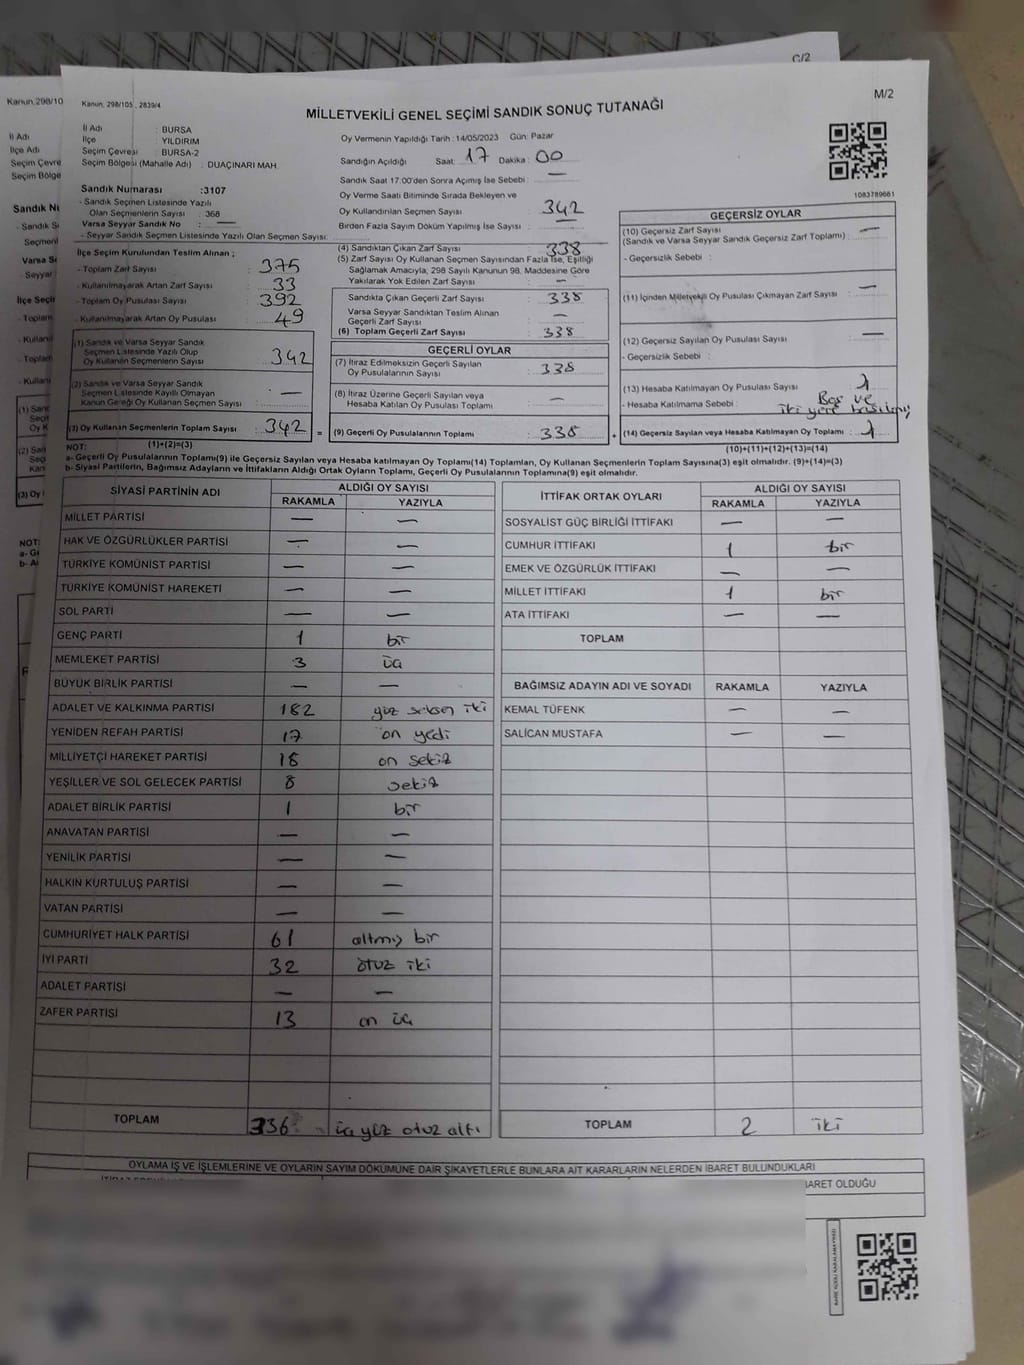 C/2
M/2
Kanun, 298/105 , 2839/4
MİLLETVEKİLİ GENEL SEÇİMİ SANDIK SONUÇ TUTANAĞI
İl Adı : BURSA
İlçe : YILDIRIM
Seçim Çevresi : BURSA-2
Seçim Bölgesi (Mahalle Adı) : DUAÇINARI MAH.
Oy Vermenin Yapıldığı Tarih : 14/05/2023 Gün: Pazar
Sandığın Açıldığı Saat: 17 Dakika : 00
Sandık Saat 17:00'den Sonra Açılmış İse Sebebi : —
Oy Verme Saati Bitiminde Sırada Bekleyen ve
Oy Kullandırılan Seçmen Sayısı : 342
Birden Fazla Sayım Döküm Yapılmış İse Sayısı : —
1083789661
Sandık Numarası :3107
- Sandık Seçmen Listesinde Yazılı
Olan Seçmenlerin Sayısı : 368
Varsa Seyyar Sandık No : —
- Seyyar Sandık Seçmen Listesinde Yazılı Olan Seçmen Sayısı:
İlçe Seçim Kurulundan Teslim Alınan ;
- Toplam Zarf Sayısı : 375
- Kullanılmayarak Artan Zarf Sayısı : 33
- Toplam Oy Pusulası Sayısı : 392
- Kullanılmayarak Artan Oy Pusulası : 49
(1) Sandık ve Varsa Seyyar Sandık
Seçmen Listesinde Yazılı Olup
Oy Kullanan Seçmenlerin Sayısı : 342
(2) Sandık ve Varsa Seyyar Sandık
Seçmen Listesinde Kayıtlı Olmayan
Kanun Gereği Oy Kullanan Seçmen Sayısı : —
(3) Oy Kullanan Seçmenlerin Toplam Sayısı : 342
(1)+(2)=(3)
(4) Sandıktan Çıkan Zarf Sayısı : 338
(5) Zarf Sayısı Oy Kullanan Seçmen Sayısından Fazla İse, Eşitliği
Sağlamak Amacıyla, 298 Sayılı Kanunun 98. Maddesine Göre
Yakılarak Yok Edilen Zarf Sayısı : —
Sandıkta Çıkan Geçerli Zarf Sayısı : 338
Varsa Seyyar Sandıktan Teslim Alınan
Geçerli Zarf Sayısı : —
(6) Toplam Geçerli Zarf Sayısı : 338
GEÇERLİ OYLAR
(7) İtiraz Edilmeksizin Geçerli Sayılan
Oy Pusulalarının Sayısı : 338
(8) İtiraz Üzerine Geçerli Sayılan veya
Hesaba Katılan Oy Pusulası Toplamı : —
(9) Geçerli Oy Pusulalarının Toplamı : 338
GEÇERSİZ OYLAR
(10) Geçersiz Zarf Sayısı
(Sandık ve Varsa Seyyar Sandık Geçersiz Zarf Toplamı) : —
- Geçersizlik Sebebi :
(11) İçinden Milletvekili Oy Pusulası Çıkmayan Zarf Sayısı : —
(12) Geçersiz Sayılan Oy Pusulası Sayısı : —
- Geçersizlik Sebebi :
(13) Hesaba Katılmayan Oy Pusulası Sayısı :
- Hesaba Katılmama Sebebi : Boş ve
iki yere basılmış
(14) Geçersiz Sayılan veya Hesaba Katılmayan Oy Toplamı :
(10)+(11)+(12)+(13)=(14)
NOT:
a- Geçerli Oy Pusulalarının Toplamı(9) ile Geçersiz Sayılan veya Hesaba katılmayan Oy Toplamı(14) Toplamları, Oy Kullanan Seçmenlerin Toplam Sayısına(3) eşit olmalıdır. (9)+(14)=(3)
b- Siyasi Partilerin, Bağımsız Adayların ve İttifakların Aldığı Ortak Oyların Toplamı, Geçerli Oy Pusulalarının Toplamına(9) eşit olmalıdır.
SİYASİ PARTİNİN ADI ALDIĞI OY SAYISI
RAKAMLA YAZIYLA
MİLLET PARTİSİ — —
HAK VE ÖZGÜRLÜKLER PARTİSİ — —
TÜRKİYE KOMÜNİST PARTİSİ — —
TÜRKİYE KOMÜNİST HAREKETİ — —
SOL PARTİ — —
GENÇ PARTİ 1 bir
MEMLEKET PARTİSİ 3 üç
BÜYÜK BİRLİK PARTİSİ — —
ADALET VE KALKINMA PARTİSİ 182 yüz seksen iki
YENİDEN REFAH PARTİSİ 17 on yedi
MİLLİYETÇİ HAREKET PARTİSİ 18 on sekiz
YEŞİLLER VE SOL GELECEK PARTİSİ 8 sekiz
ADALET BİRLİK PARTİSİ 1 bir
ANAVATAN PARTİSİ — —
YENİLİK PARTİSİ — —
HALKIN KURTULUŞ PARTİSİ — —
VATAN PARTİSİ — —
CUMHURİYET HALK PARTİSİ 61 altmış bir
İYİ PARTİ 32 otuz iki
ADALET PARTİSİ — —
ZAFER PARTİSİ 13 on üç
TOPLAM 336 üç yüz otuz altı
İTTİFAK ORTAK OYLARI ALDIĞI OY SAYISI
RAKAMLA YAZIYLA
SOSYALİST GÜÇ BİRLİĞİ İTTİFAKI — —
CUMHUR İTTİFAKI 1 bir
EMEK VE ÖZGÜRLÜK İTTİFAKI — —
MİLLET İTTİFAKI 1 bir
ATA İTTİFAKI — —
TOPLAM
BAĞIMSIZ ADAYIN ADI VE SOYADI RAKAMLA YAZIYLA
KEMAL TÜFENK — —
SALİCAN MUSTAFA — —
TOPLAM 2 iki
OYLAMA İŞ VE İŞLEMLERİNE VE OYLARIN SAYIM DÖKÜMÜNE DAİR ŞİKAYETLERLE BUNLARA AİT KARARLARIN NELERDEN İBARET BULUNDUKLARI
BARET OLDUĞU